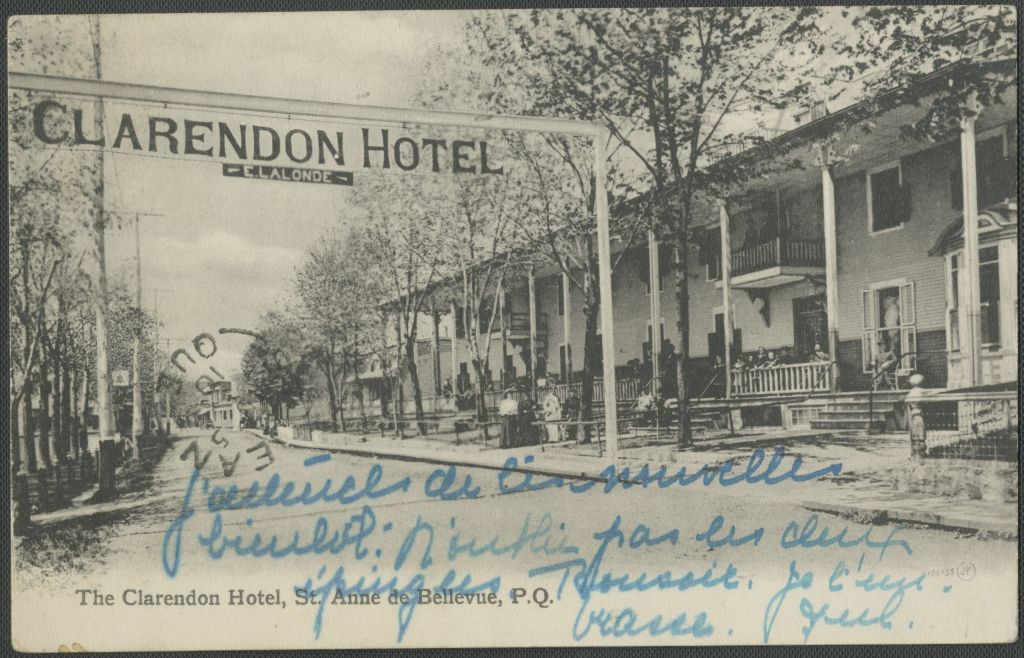 CLARENDON HOTEL
E. LALONDE
J'attends de tes nouvelles
bientôt. N'oublie pas les deux
épingles. Bonsoir. Je t'em-
brasse.
The Clarendon Hotel, St. Anne de Bellevue, P.Q.